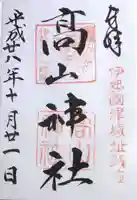 奉拝
伊賀國津城址鎮座
高山神社
平成廿八年十月廿一日